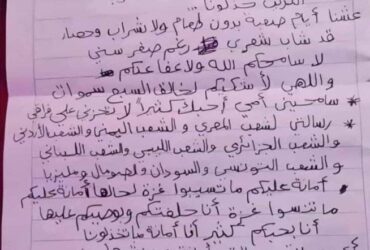 عشنا أيام صعبة بدون طعام ولا شراب وحصار
قد شاب شعري رغم صغر سني
لا سامحكم الله ولا عفا عنكم
واللهي لأشكيكم لخالق السبع سموات
* سامحيني أمي أحبك كثيرًا لا تحزني على فراقي
* رسالتي لشعب المصري و الشعب اليمني والشعب الأردني
والشعب الجزائري والشعب الليبي والشعب اللبناني
و الشعب التونسي والسودان و لصومال وماليزيا
أمانة عليكم ما تسيبوا غزة لحالها أمانة عليكم
ما تنسوا غزة أنا حلفتكم وبوصيكم عليها
أنا بحبكم كثير أنا أمانة ما تخذلونا